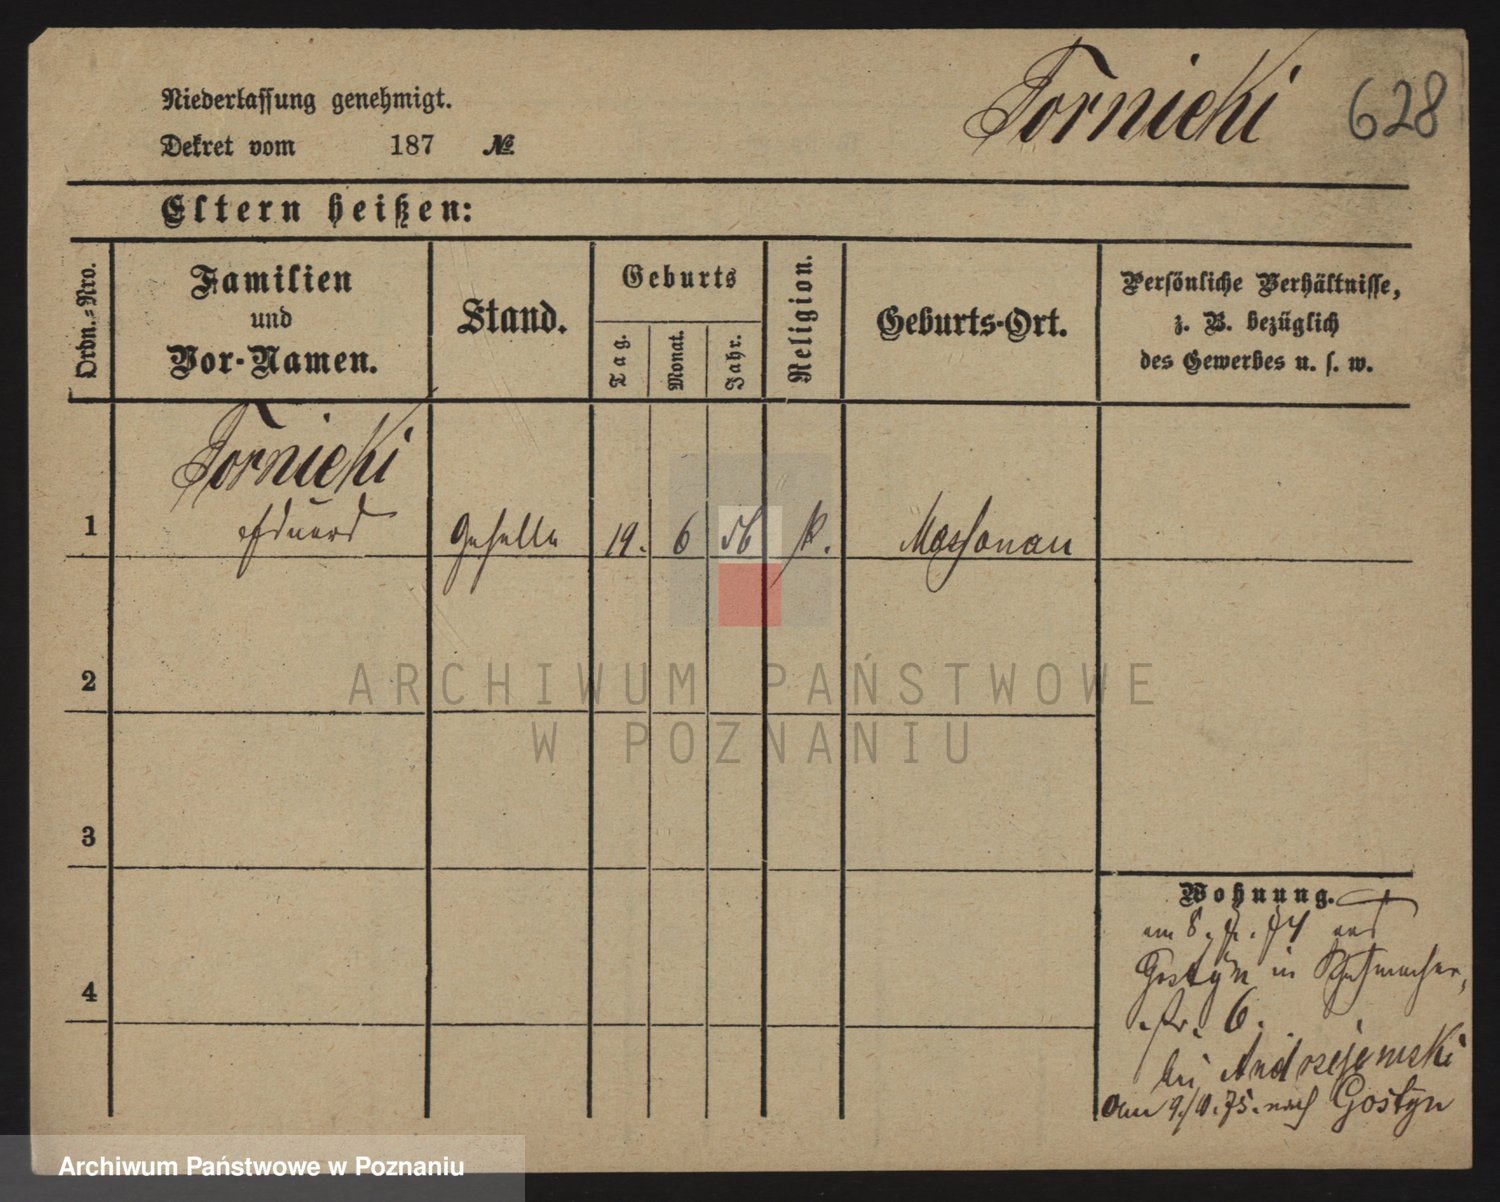 Tornicki 628
Niederlassung genehmigt.
Dekret vom 187 №
Eltern heißen:
Ordn.-Nro.
Familien
und
Vor-Namen.
Stand.
Geburts
Tag.
Monat.
Jahr.
Religion.
Geburts-Ort.
Persönliche Verhältnisse,
z. B. bezüglich
des Gewerbes u. s. w.
Tornicki
1 Eduard Geselle 19. 6 56 k.
2
3
4
Wohnung.
am 8. 74 aus
Gostyn in Schuhmacher-
str. 6.
bei Andrzejewski
am 9/ 75. nach Gostyn
ARCHIWUM PAŃSTWOWE
W POZNANIU
Archiwum Państwowe w Poznaniu